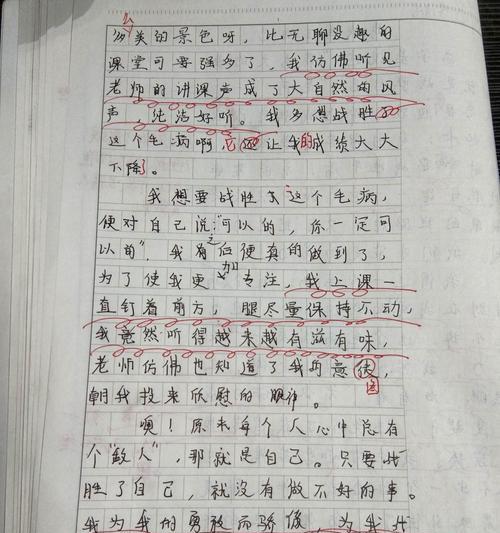 多美的景色呀，比无聊没趣的
课堂可要强多了，我仿佛听见
老师的讲课声成了大自然的风
声，纯洁好听。我多想战胜
这个毛病啊，它还让我的成绩大大
下降了。
我想要战胜这个毛病，
便对自己说“可以的，你一定可
以的”，我有之后便真的做到了，
为了使我更加专注，我上课一
直钉着前方，腿尽量保持不动，
我竟然听得越来越有滋有味，
老师仿佛也知道了我的意图，
朝我投来欣慰的眼神。
噢！原来每个人心中总有
个“敌人”，那就是自己。只要战
胜了自己，就没有做不好的事。
我为我的勇敢而骄傲，为我